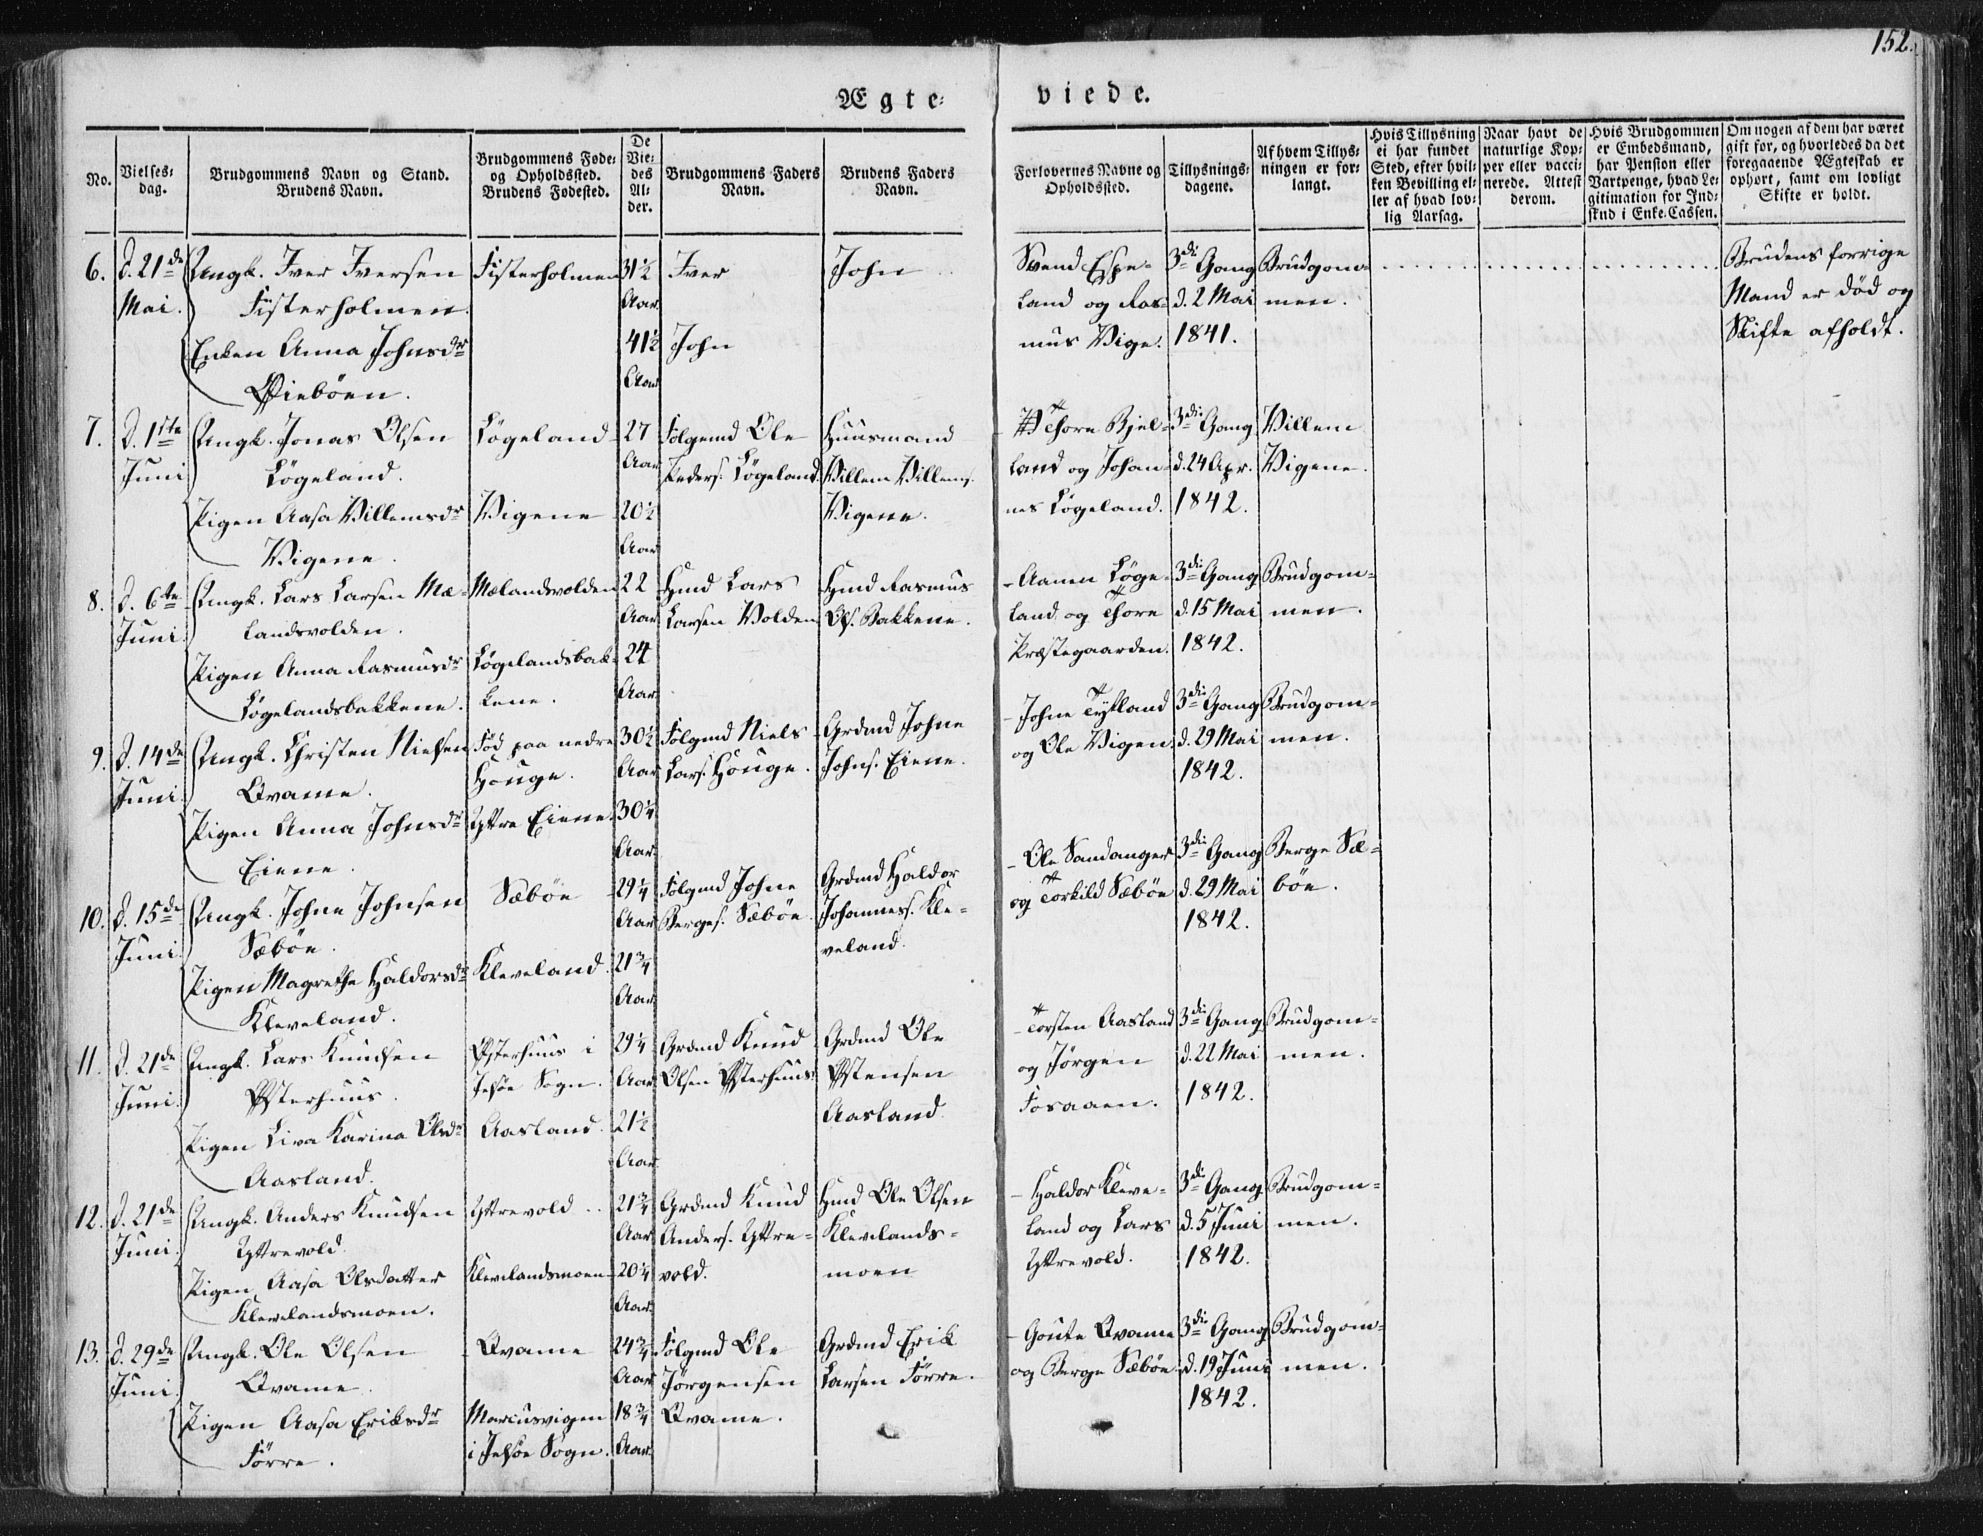 152.
Ægte-
viede.
No.
Vielses-
dag.
Brudgommens Navn og Stand.
Brudens Navn.
Brudgommens Føde-
og Opholdssted.
Brudens Fødested.
De
Vie-
des
Al-
der.
Brudgommens Faders
Navn.
Brudens Faders
Navn.
Forlovernes Navne og
Opholdssted.
Tillysnings-
dagene.
Af hvem Tillys-
ningen er for-
langt.
Hvis Tillysning
ei har fundet
Sted, efter hvil-
ken Bevilling el-
ler af hvad lov-
lig Aarsag.
Naar havt de
naturlige Kop-
per eller vacci-
nerede. Attest
derom.
Hvis Brudgommen
er Embedsmand,
har Pension eller
Vartpenge, hvad Le-
gitimation for Ind-
skud i Enke-Cassen.
Om nogen af dem har været
gift før, og hvorledes da det
foregaaende Ægteskab er
ophørt, samt om lovligt
Skifte er holdt.
6.
d. 21de
Mai.
Ungk. Iver Iversen
Fisterholmen.
Enken Anna Johnsdr
Øiebøen.
Fisterholmen
31½
Aar
41½
Aar
Iver
John
John
Svend Espe-
land og Ras-
mus Vige.
3die Gang
d. 2 Mai
1841.
Brudgom-
men.
Brudens forrige
Mand er død og
Skifte afholdt.
7.
d. 1ste
Juni
Ungk. Jonas Olsen
Løgeland.
Pigen Aasa Villemsdr
Vigene.
Løgeland
Vigene
27
Aar
20½
Aar
Følgemd Ole
Peders. Løgeland
Huusmand
Villem Villems.
Vigene.
Thore Bjel-
land og Johan-
nes Løgeland.
3die Gang
d. 24 Apr.
1842.
Villem
Vigene.
8.
d. 6te
Juni
Ungk. Lars Larsen Mæ-
landsvolden.
Pigen Anna Rasmusdr
Løgelandsbakkene.
Mælandsvolden
Løgelandsbak-
kene.
22
Aar
24
Aar
Hmd Lars
Larsen Volden
Hmd Rasmus
Ols. Bakkene.
Aanen Løge-
land og Thore
Præstegaarden.
3die Gang
d. 15 Mai
1842.
Brudgom-
men.
9.
d. 14de
Juni
Ungk. Christen Nielsen
Qvame.
Pigen Anna Johnsdr
Eiene.
Fød paa nedre
Houge.
Yttre Eiene
30½
Aar
30¼
Aar
Følgmd Niels
Lars. Houge.
Grdmd Johne
Johns. Eiene.
Johne Tytland
og Ole Vigen
3die Gang
d. 29 Mai
1842.
Brudgom-
men.
10.
d. 15de
Juni
Ungk. Johne Johnsen
Sæbøe.
Pigen Magrethe Haldorsdr
Kleveland.
Sæbøe
Kleveland.
29¼
Aar
21¾
Aar
Følgmd Johne
Berges. Sæbøe.
Grdmd Haldor
Johanness. Kle-
veland.
Ole Sandanger
og Torkild Sæbøe
3die Gang
d. 29 Mai
1842.
Berge Sæ-
bøe.
11.
d. 21de
Juni.
Ungk. Lars Knudsen
Østerhuus.
Pigen Liva Karina Olsdr
Aasland.
Østerhuus i
Jelsøe Sogn.
Aasland.
29¼
Aar
21½
Aar
Grdmd Knud
Olsen Østerhuus
Grdmd Ole
Østensen
Aasland.
Torsten Aasland
og Jørgen
Fosaaen.
3die Gang
d. 22 Mai
1842.
Brudgom-
men.
12.
d. 21de
Juni.
Ungk. Anders Knudsen
Yttrevold.
Pigen Aasa Olsdatter
Klevelandsmoen.
Yttrevold
Klevelandsmoen
21¾
Aar
20¼
Aar
Grdmd Knud
Anders. Yttre-
vold.
Hmd Ole Olsen
Klevelands-
moen
Haldor Kleve-
land og Lars
Yttrevold.
3die Gang
d. 5 Juni
1842.
Brudgom-
men.
13.
d. 29de
Juni
Ungk. Ole Olsen
Qvame.
Pigen Aasa Eriksdr
Førre.
Qvame
Marcusvigen
i Jelsøe Sogn.
24¾
Aar
18¾
Aar
Følgmd Ole
Jørgensen
Qvame.
Grdmd Erik
Larsen Førre.
Goute Qvame
og Berge Sæbøe
3die Gang
d. 19 Juni
1842.
Brudgom-
men.